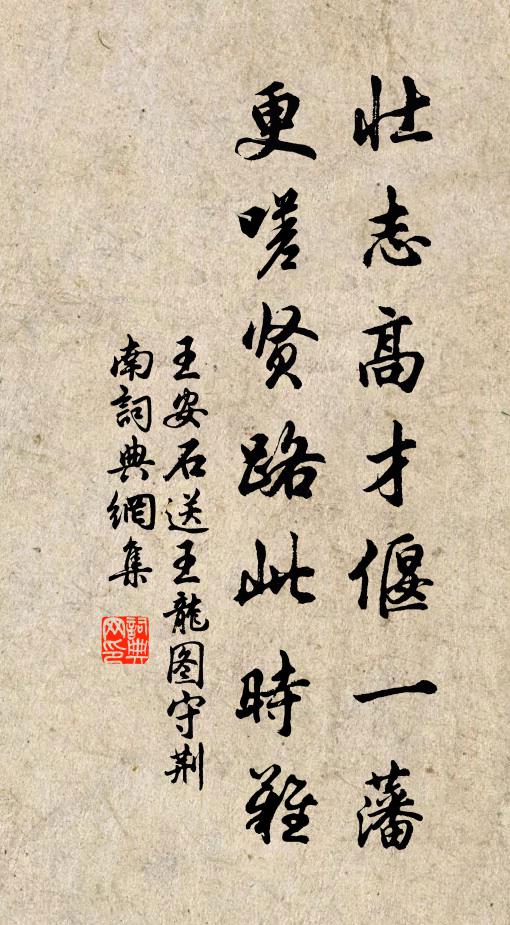 壮志高才偃一藩
更嗟贤路此時難
王安石送王龍图守荆
南詞典網集
詞典網印